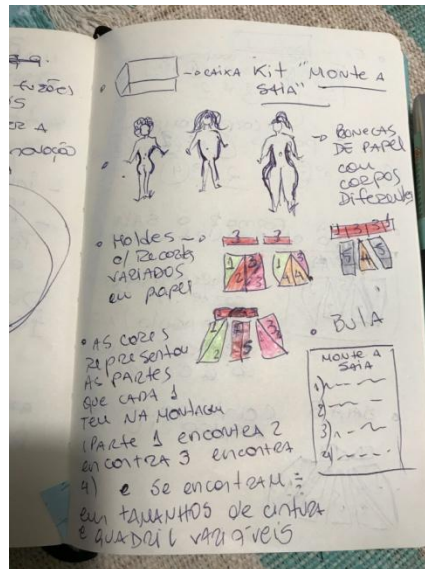 fuzões
IS
ER A
novação
CAIXA KIT "MONTE A
SAIA"
BONECAS
DE PAPEL
COM
CORPOS
DIFERENTES
MOLDES
c/ RECORTES
VARIADOS
em papel
3 3
1 2 3
1 3
4 4
3 3
5 4 5
AS CORES
REPRESENTAM
AS PARTES
QUE CADA 1
TEM NA MONTAGEM
(PARTE 1 ENCONTRA 2
ENCONTRA 3 ENCONTRA
4) e se encontram
em TAMANHOS de cintura
e QUADRIL VARIÁVEIS
BULA
MONTE A
SAIA
1)
2)
3)
4)